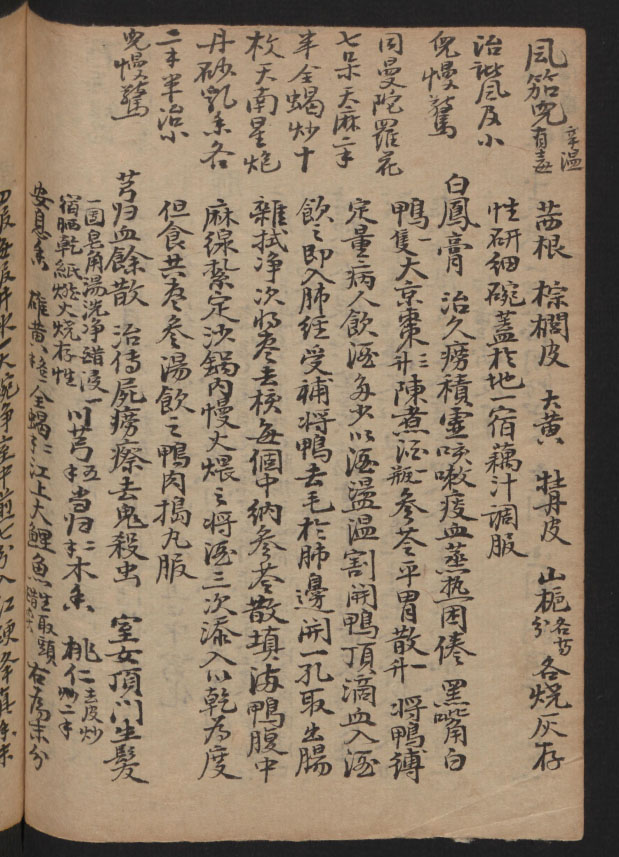 風茄兒 辛温有毒
治諸風及小
兒慢驚
同曼陀羅花
七朵天麻二𠂇
半全蝎炒十
枚天南星炮
丹砂乳香各
二𠂇半治小
兒慢驚
茜根 棕櫚皮 大黃 牡丹皮 山梔 各等分 各燒灰存
性研細碗蓋於地一宿藕汁調服
白鳳膏 治久癆積虛咳嗽痰血蒸热困倦 黑嘴角白
鴨一隻大京棗二升陳煮酒一瓶參苓平胃散一升 將鴨縛
定量病人飲酒多少以酒盪温割開鴨頂滴血入酒
飲之即入肺經受補將鴨去毛於肋邊開一孔取出腸
雜拭淨次將棗去核每個中納參苓散填滿鴨腹中
麻線紮定沙鍋內慢火煨之將酒三次添入以乾為度
但食其棗參湯飲之鴨肉搗丸服
芎归血餘散 治傳屍癆瘵去鬼殺虫 室女頂門生髮
一團皂角湯洗淨醋浸一
宿晒乾紙撚火燒存性 川芎 當归 木香 桃仁 去皮炒
安息香 雄黃 全蝎二 江上大鯉魚 生取頭醋炙 右為末分
四服每服井水一大碗淨室中煎七分入紅硬降真香末